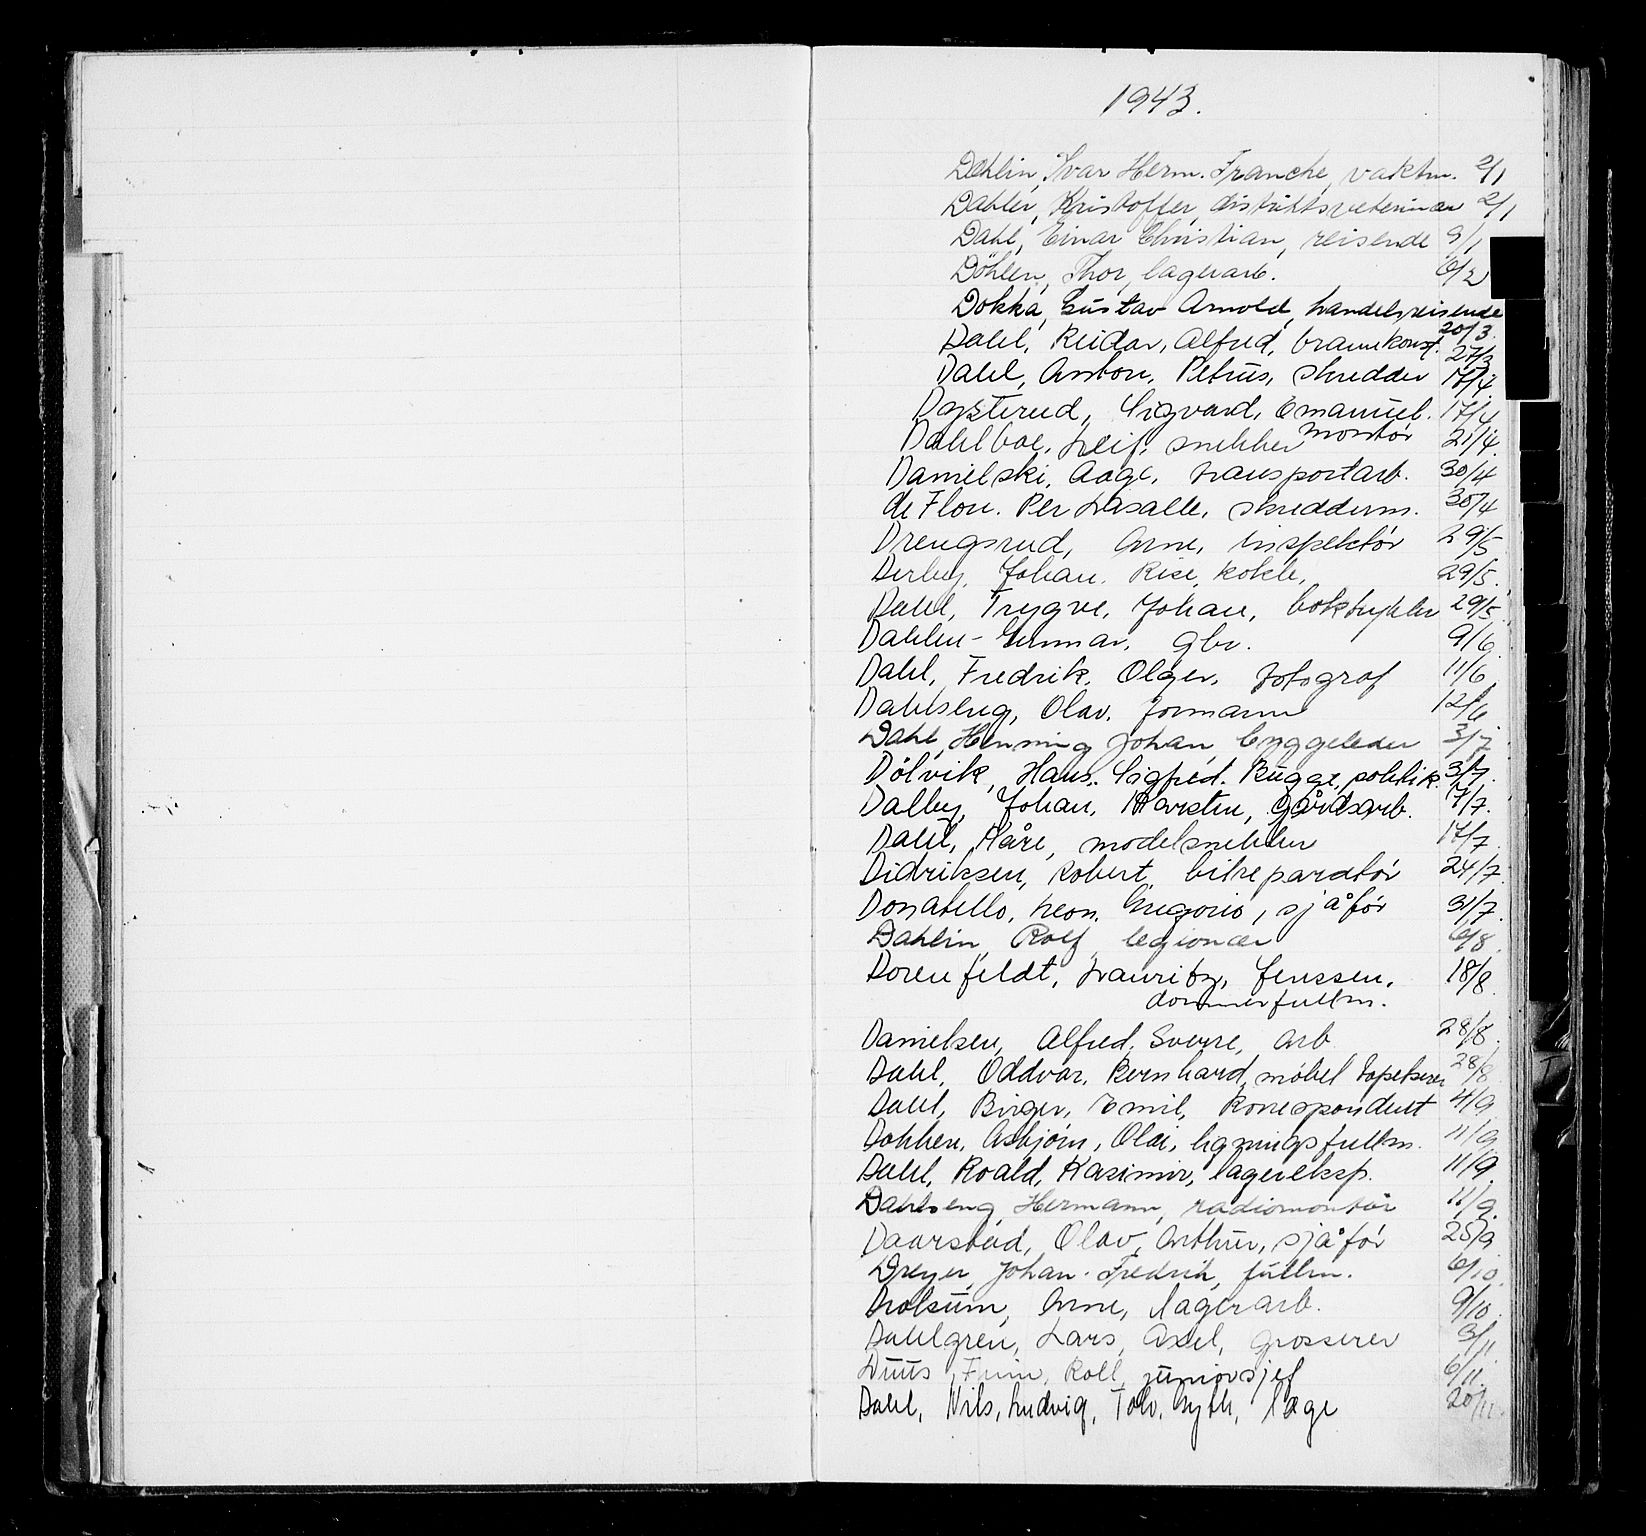 1943.
Dahlin, Ivar Herm. Franche, vaktm. 2/1
Dahler, Kristoffer, distriktsveterinær 2/1
Dahl, Einar Christian, reisende 9/1
Döhlen, Thor, lagerarb. 6/2
Dokka, Gustav Arnold, handelsreisende 20/3
Dahl, Reidar, Alfred, brannkonst. 27/3
Dahl, Anton, Petrus, skredder 17/4
Dysterud, Sigvard, Emanuel. 17/4
montör
Dahlboe, Leif, snekker 21/4
Danielski, Aage, transportarb. 30/4
de Flon. Per Lasalle, skredderm. 30/4
Drengsrud, Arne, inspektör 29/5
Derby, Johan. Rise, kokk, 29/5
Dahl, Trygve, Johan, boktrykker 29/5
Dahlen- Gunnar, gbr. 9/6
Dahl, Fredrik, Olger, fotograf 11/6
Dahlseng, Olav, formann 12/6
Dahl, Henning Johan byggeleder 3/7
Dölvik, Hans. Sigfred. Bugge, politik. 3/7
Dalby, Johan, Karsten, gårdsarb. 7/7
Dahl, Kåre, modelsnekker 17/7
Didriksen, Robert, bilreparatör 24/7
Donatello, Leon, Gregorio, sjåför 31/7
Dahlin, Rolf, legionær 6/8
Dorenfeldt, Lauritz, Jenssen, 18/8
dommerfullm.
Danielsen, Alfred, Sverre, arb. 28/8
Dahl, Oddvar, Bernhard, möbel tapetserer 28/8
Dahl, Birger, Emil, korrespondent 4/9
Dokken, Asbjörn, Olai, ligningsfullm. 11/9
Dahl, Roald, Kasimir, lagereksp. 11/9
Dahlseng, Hermann, radiomontör 11/9
Daarstad, Olav, Arthur, sjåför 25/9
Dreyer, Johan Fredrik, fullm. 6/10
Drolsum, Arne, lagerarb. 9/10
Dahlgren, Lars, Axel, grosserer 3/11
Duus Finn, Roll, juniorsjef 6/11
Dahl, Nils, Ludvig, Tolv, Gyth, læge 20/11